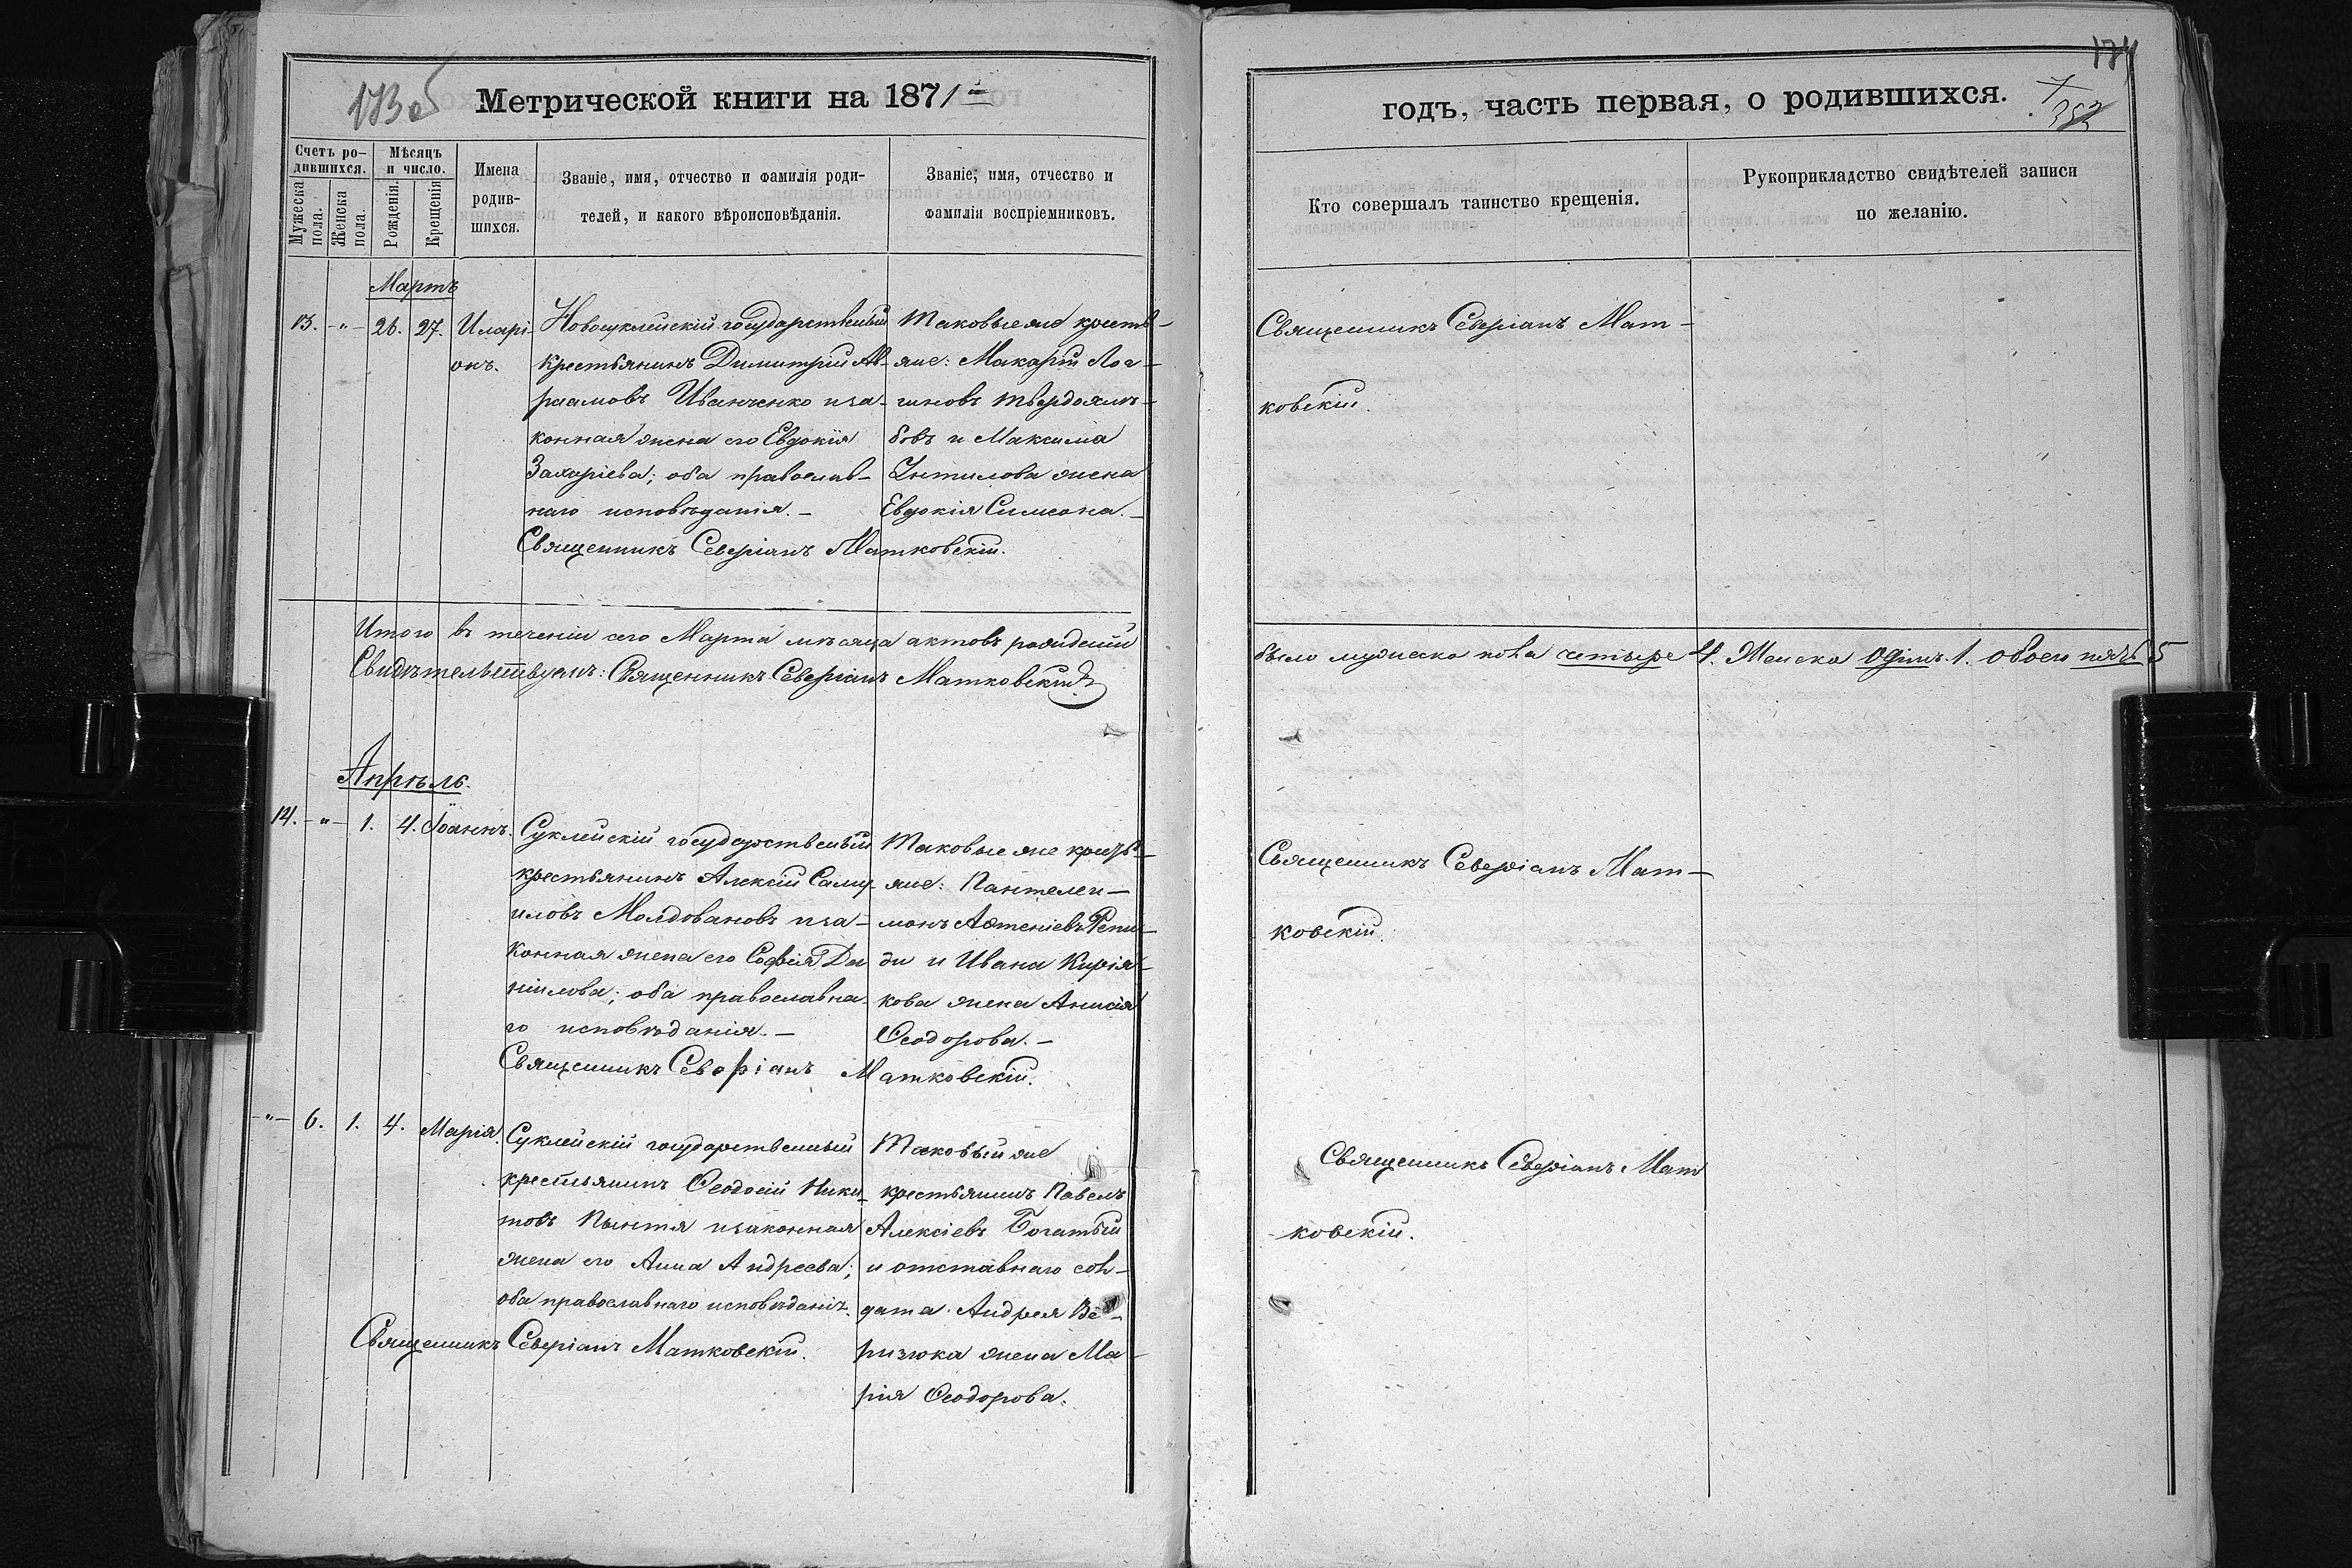 173 об
Метрической книги на 1871-й
Счетъ ро-
дившихся.
Мужеска пола.
Женска пола.
Мѣсяцъ
и число.
Рожденія.
Крещенія
Имена
родив-
шихся.
Званіе, имя, отчество и фамилія роди-
телей, и какого вѣроисповѣданія.
Званіе, имя, отчество и
фамилія воспріемниковъ.
Мартъ
13. -„- 26. 27. Иларі-
онъ.
Новосуклейскій государственный
крестьянинъ Димитрій Ав-
раамовъ Иванченко и за-
конная жена его Евдокія
Захаріева; оба православ-
наго исповѣданія. -
Таковые же кресть-
яне: Макарій Лог-
гиновъ Твердохлѣ-
бовъ и Максима
жена
Евдокія Симеона. -
Священникъ Северіанъ Матковскій.
Итого въ теченіи сего Марта мѣсяца актовъ рожденій
Свидѣтельствуетъ: Священникъ Северіанъ Матковскій
Апрѣль.
14. -„- 1. 4. Іоаннъ.
Суклейскій государственный
крестьянинъ Алексій Саму-
иловъ Молдовановъ и за-
конная жена его Софія Да
ніилова; оба православна-
го исповѣданія. -
Таковые же кресть-
яне: Пантелеи-
монъ
ди и Ивана Кирія-
кова жена Анисія
Ѳеодорова. -
Священникъ Северіанъ Матковскій.
-„- 6. 1. 4. Марія.
Суклейскій государственный
крестьянинъ Ѳеодосій Ники-
товъ Пынтя и законная
жена его Анна Андреева;
оба православнаго исповѣданія.
Таковый же
крестьянинъ Павелъ
Алексіевъ Богатый
и отставнаго сол-
дата Андрея Ве-
ризюка жена Ма-
рія Ѳеодорова.
Священникъ Северіанъ Матковскій.
174
годъ, часть первая, о родившихся.
Кто совершалъ таинство крещенія.
Рукоприкладство свидѣтелей записи
по желанію.
Священникъ Северіанъ Мат-
ковскій.
было мужеска пола четыре 4. Женска Одинъ. 1. обоего пять 5
Священникъ Северіанъ Мат-
ковскій.
Священникъ Северіанъ Мат
ковскій.